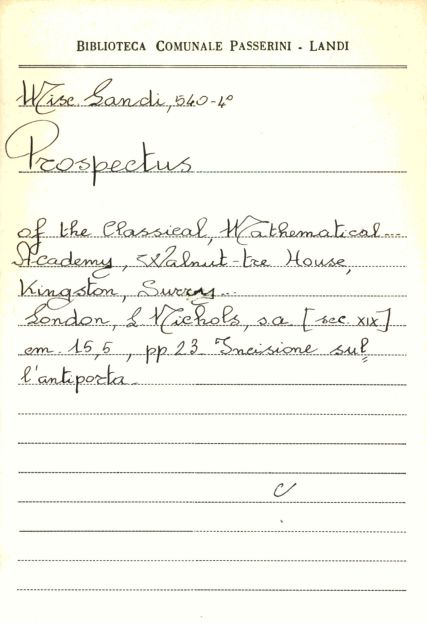 BIBLIOTECA COMUNALE PASSERINI - LANDI
Misc. Landi, 540-4°
Prospectus
of the Classical, Mathematical...
Academy, Walnut-tre House,
Kingston, Surry...
London, L Nichols, s.a. [sec. XIX]
cm. 15,5, pp. 23. Incisione sul=
l'antiporta.